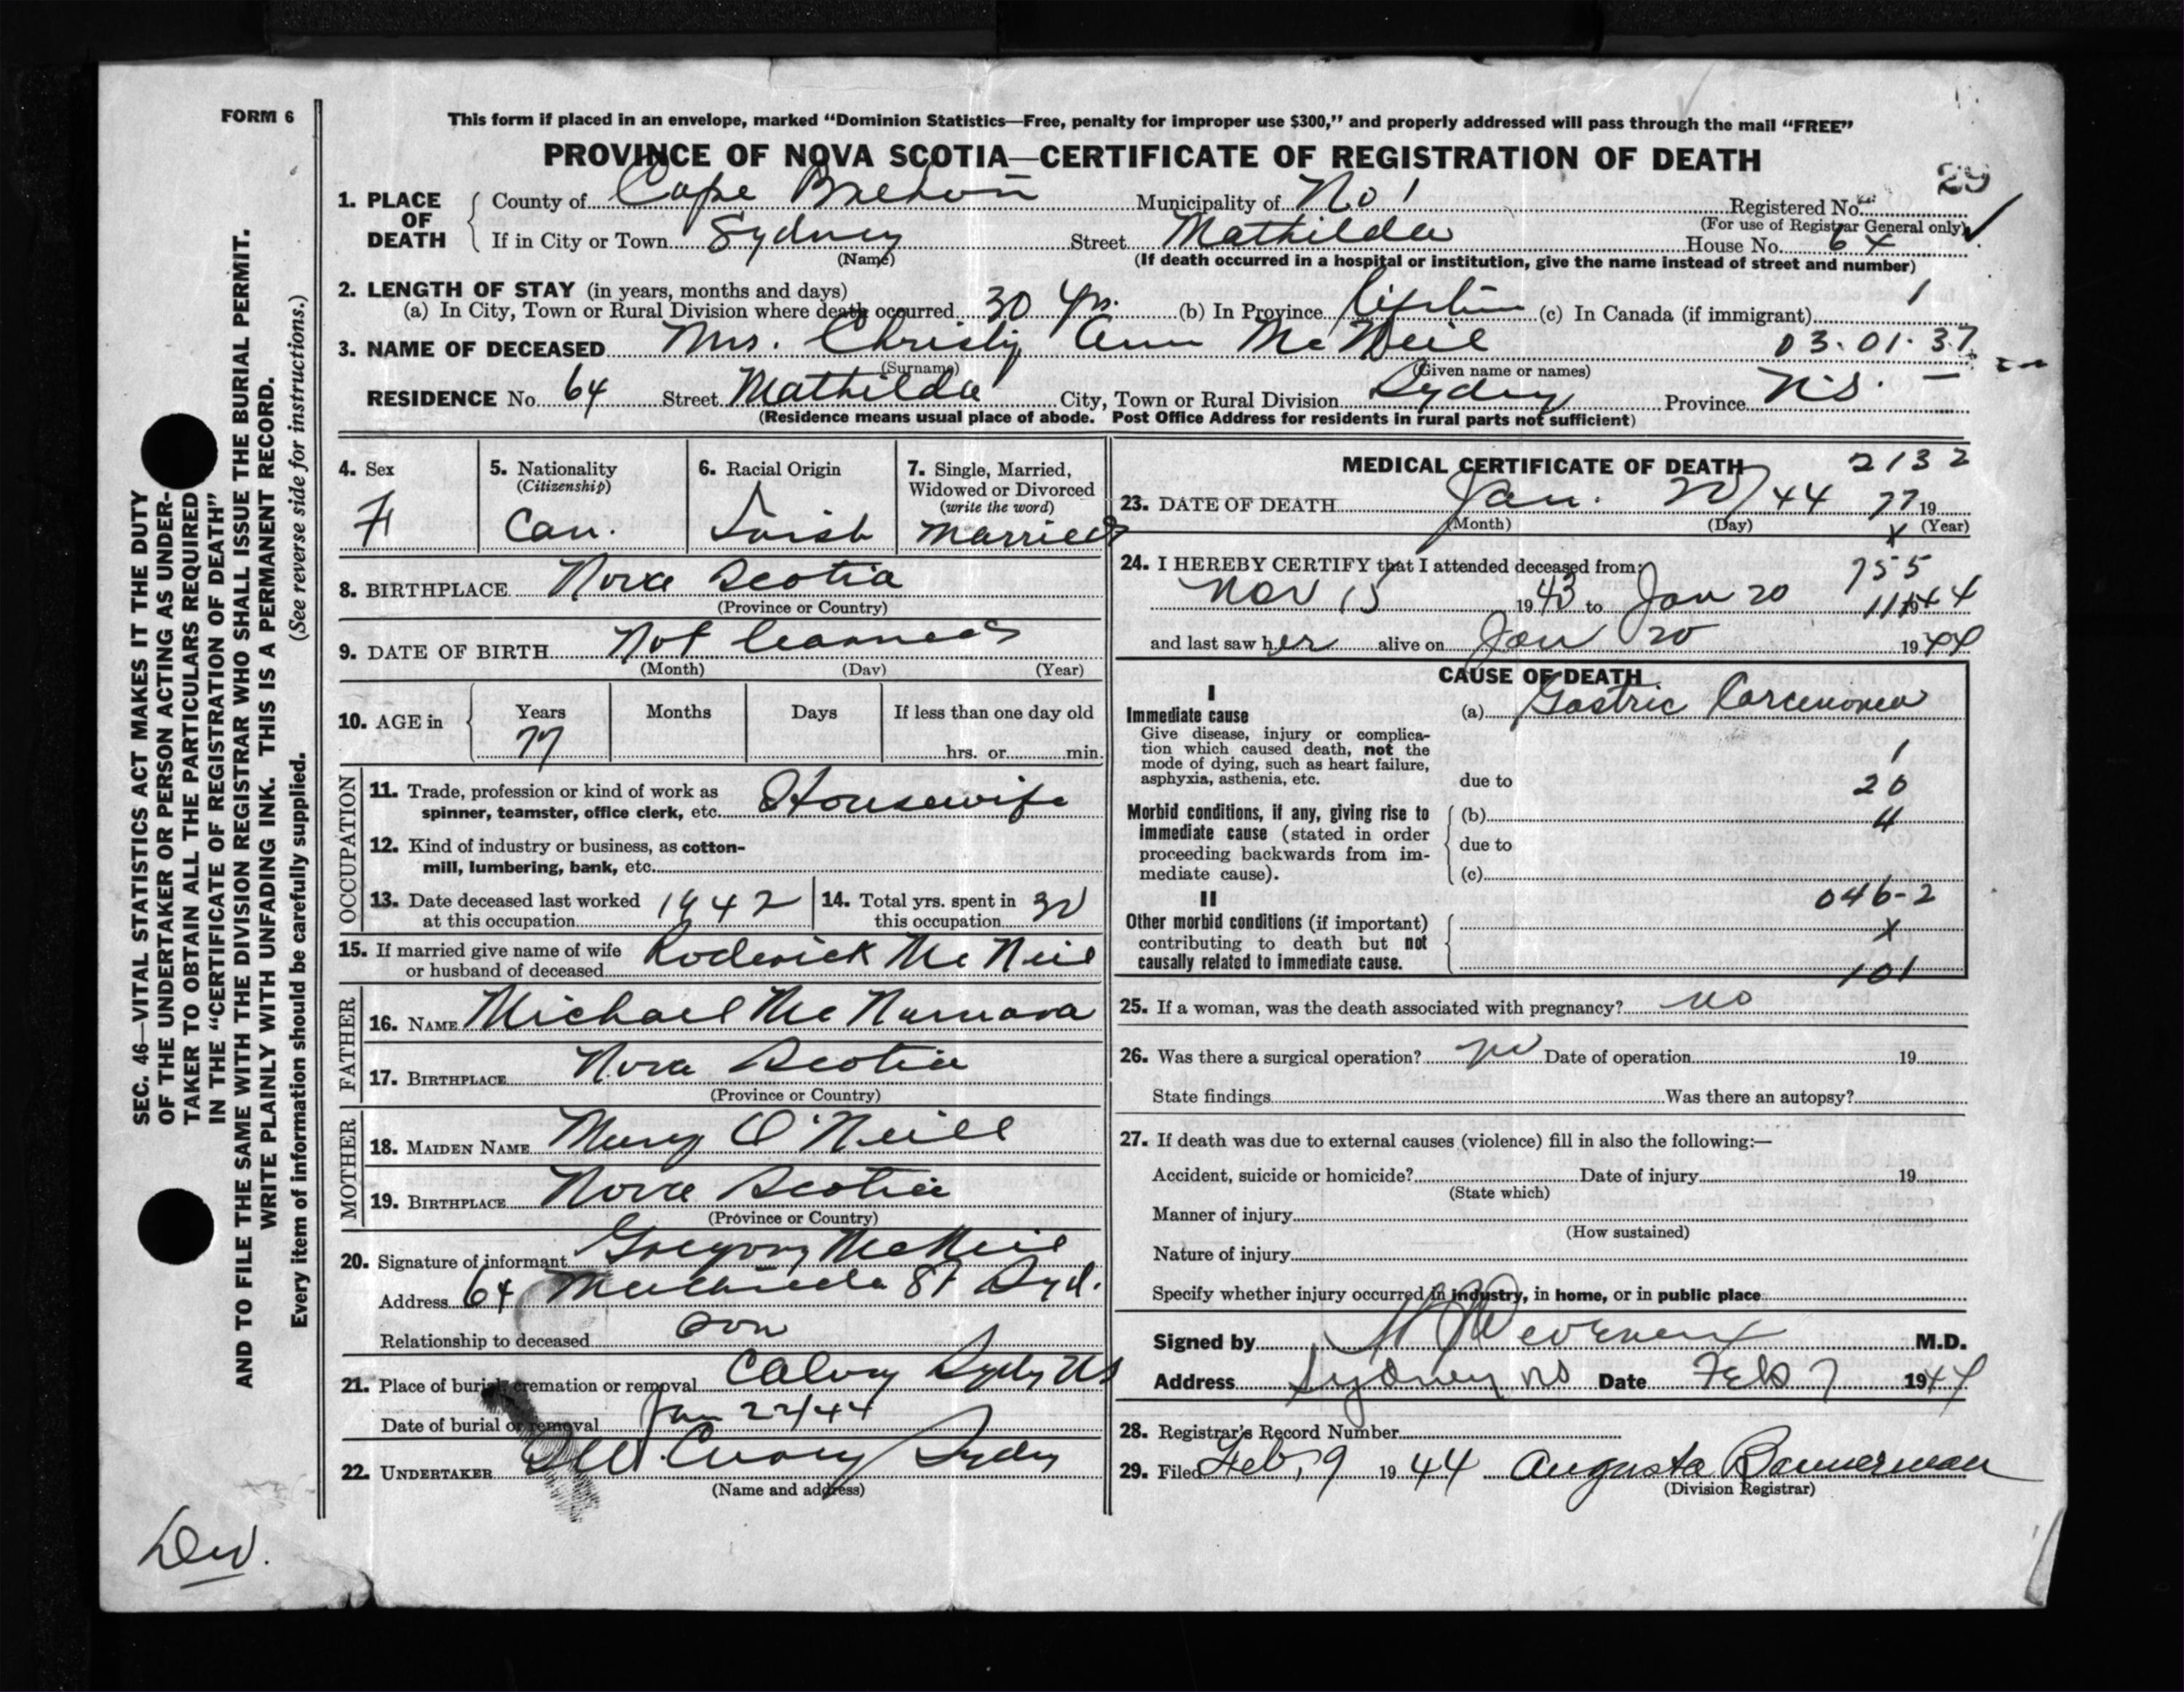 FORM 6
This form if placed in an envelope, marked “Dominion Statistics—Free, penalty for improper use $300,” and properly addressed will pass through the mail “FREE”
PROVINCE OF NOVA SCOTIA—CERTIFICATE OF REGISTRATION OF DEATH
29
1. PLACE OF DEATH
County of Cape Breton Municipality of No 1 Registered No.
(For use of Registrar General only)
If in City or Town Sydney Street Mathilda House No. 64
(Name) (If death occurred in a hospital or institution, give the name instead of street and number)
2. LENGTH OF STAY (in years, months and days)
(a) In City, Town or Rural Division where death occurred 30 yrs. (b) In Province lifetime (c) In Canada (if immigrant) 1
3. NAME OF DECEASED Mrs. Christy Ann McNeil 03.01.37
(Surname) (Given name or names)
RESIDENCE No. 64 Street Mathilda City, Town or Rural Division Sydney Province N.S. —
(Residence means usual place of abode. Post Office Address for residents in rural parts not sufficient)
4. Sex
F
5. Nationality
(Citizenship)
Can.
6. Racial Origin
Irish
7. Single, Married, Widowed or Divorced
(write the word)
Married
8. BIRTHPLACE Nova Scotia
(Province or Country)
9. DATE OF BIRTH Not learned
(Month) (Day) (Year)
10. AGE in Years Months Days If less than one day old
77 hrs. or min.
OCCUPATION
11. Trade, profession or kind of work as
spinner, teamster, office clerk, etc. Housewife
12. Kind of industry or business, as cotton-
mill, lumbering, bank, etc.
13. Date deceased last worked at this occupation 1942
14. Total yrs. spent in this occupation 30
15. If married give name of wife
or husband of deceased Roderick McNeil
FATHER
16. NAME Michael McNamara
17. BIRTHPLACE Nova Scotia
(Province or Country)
MOTHER
18. MAIDEN NAME Mary O'Neill
19. BIRTHPLACE Nova Scotia
(Province or Country)
20. Signature of informant Gregory McNeil
Address 64 Mathilda St Syd.
Relationship to deceased Son
21. Place of burial, cremation or removal Calvary Sydney NS
Date of burial or removal Jan 22/44
22. UNDERTAKER Sydney
(Name and address)
MEDICAL CERTIFICATE OF DEATH 2132
23. DATE OF DEATH Jan. 20/44 77 19
(Month) (Day) x (Year)
24. I HEREBY CERTIFY that I attended deceased from: 755
Nov 15 1943 to Jan 20 1944
and last saw her alive on Jan 20 1944
CAUSE OF DEATH
I
Immediate cause
Give disease, injury or complica-
tion which caused death, not the
mode of dying, such as heart failure,
asphyxia, asthenia, etc.
(a) Gastric Carcinoma
1
due to 20
Morbid conditions, if any, giving rise to
immediate cause (stated in order
proceeding backwards from im-
mediate cause).
(b) 4
due to
(c)
II
046-2
Other morbid conditions (if important)
contributing to death but not
causally related to immediate cause.
x
101
25. If a woman, was the death associated with pregnancy? no
26. Was there a surgical operation? no Date of operation 19
State findings Was there an autopsy?
27. If death was due to external causes (violence) fill in also the following:—
Accident, suicide or homicide? Date of injury 19
(State which)
Manner of injury
(How sustained)
Nature of injury
Specify whether injury occurred in industry, in home, or in public place
Signed by M.D.
Address Sydney NS Date Feb 7 1944
28. Registrar's Record Number
29. Filed Feb, 9 1944 Augusta Bannerman
(Division Registrar)
SEC. 46—VITAL STATISTICS ACT MAKES IT THE DUTY
OF THE UNDERTAKER OR PERSON ACTING AS UNDER-
TAKER TO OBTAIN ALL THE PARTICULARS REQUIRED
IN THE “CERTIFICATE OF REGISTRATION OF DEATH”
AND TO FILE THE SAME WITH THE DIVISION REGISTRAR WHO SHALL ISSUE THE BURIAL PERMIT.
WRITE PLAINLY WITH UNFADING INK. THIS IS A PERMANENT RECORD.
Every item of information should be carefully supplied. (See reverse side for instructions.)